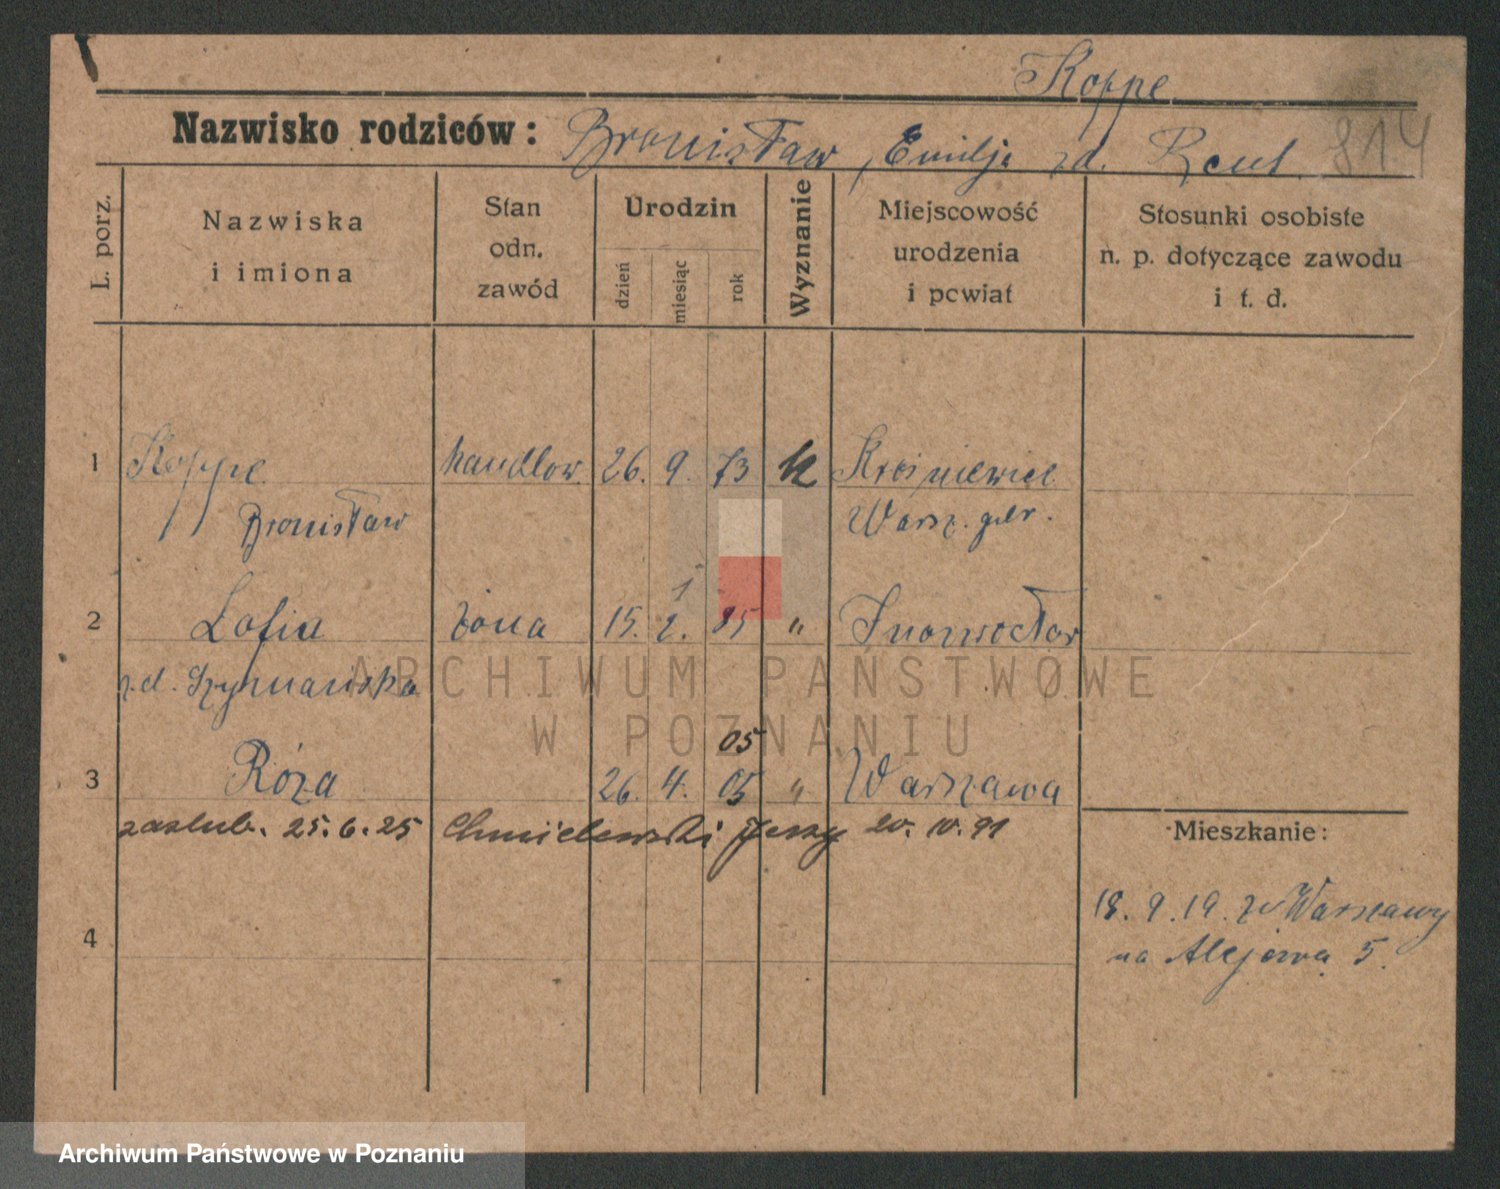 Koppe
Nazwisko rodziców: Bronisław, Emilja zd.
814
L. porz.
Nazwiska
i imiona
Stan
odn.
zawód
Urodzin
dzień
miesiąc
rok
Wyznanie
Miejscowość
urodzenia
i powiat
Stosunki osobiste
n. p. dotyczące zawodu
i t. d.
1 Koppe handlow. 26. 9. 73 k Krośniewice
Bronisław Warsz. gub.
1
2 Zofia żona 15. 2. 85 " Inowrocław
z d. Szymańska
05
3 Róża 26. 4. 05 " Warszawa
zaślub. 25.6.25 Chmielewski Jerzy 20.10.91
Mieszkanie:
18.9.19. z Warszawy
na Alejowa 5.
4
ARCHIWUM PAŃSTWOWE
W POZNANIU
Archiwum Państwowe w Poznaniu